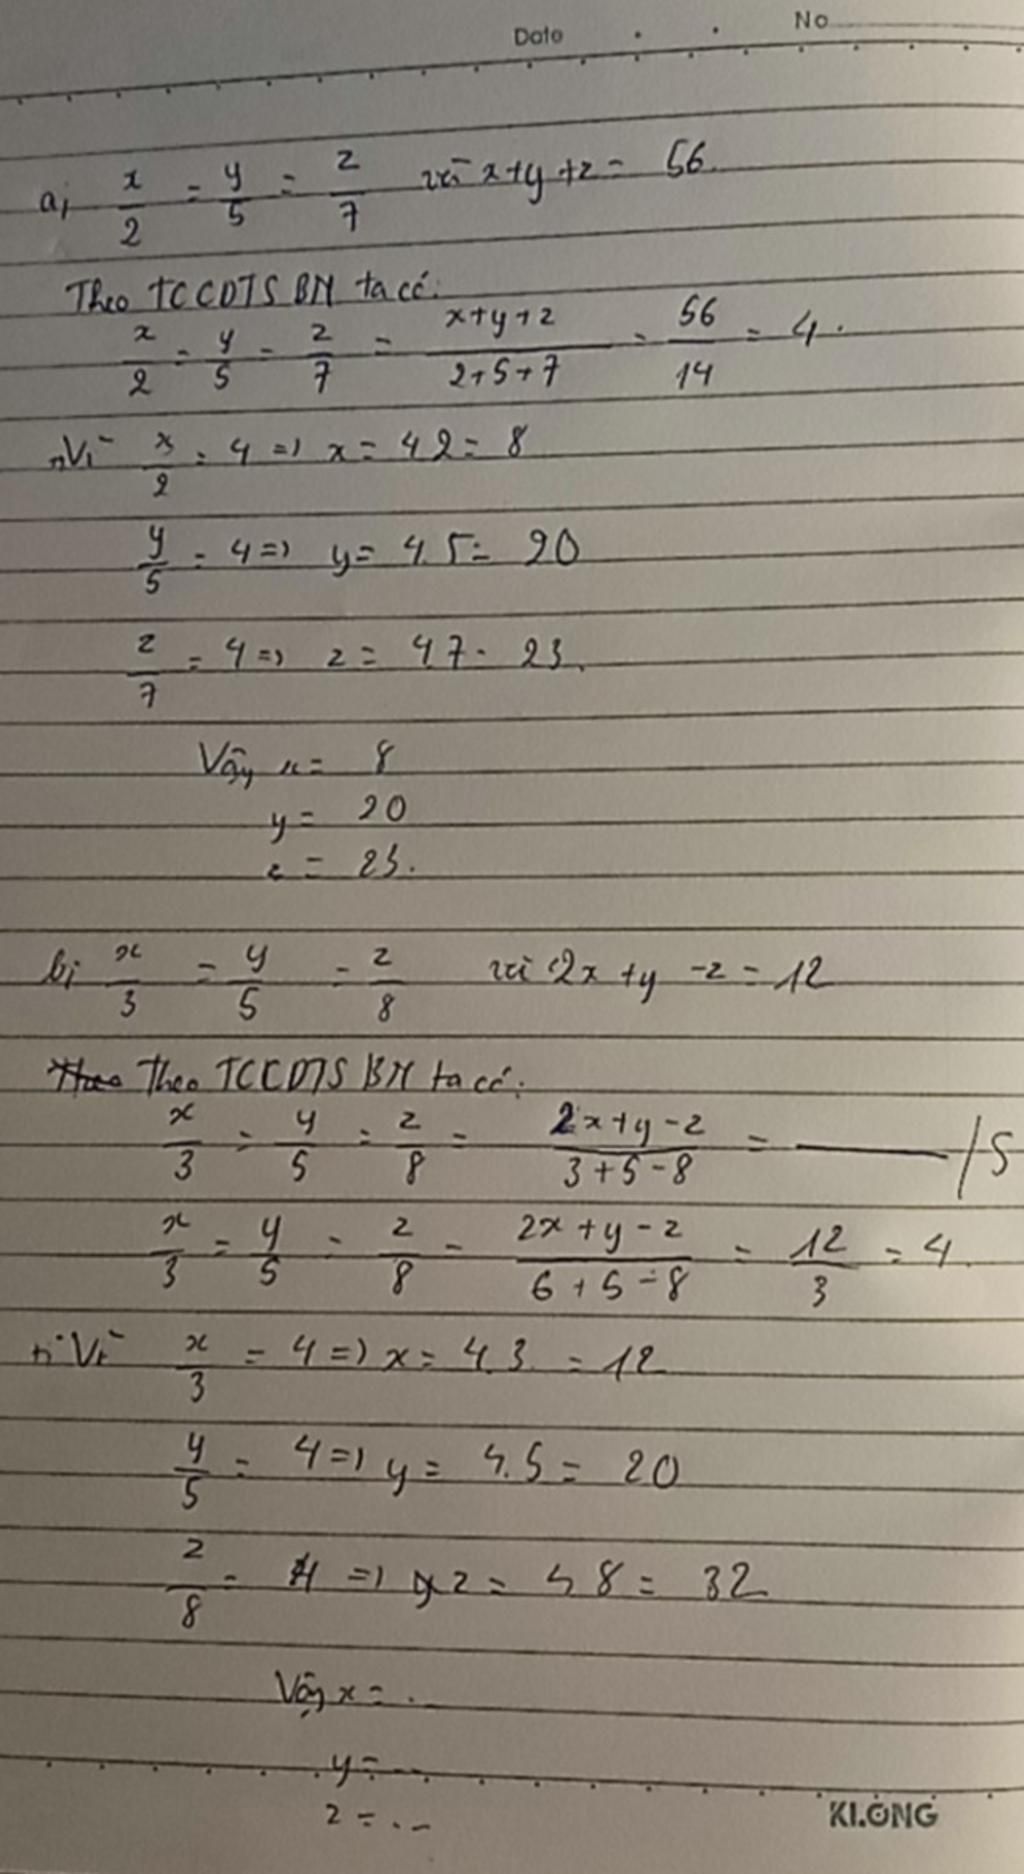 Date . . No
a, x/2 = y/5 = z/7 với x+y+z = 56
Theo TCCDTSBN ta có:
x/2 = y/5 = z/7 = x+y+z/2+5+7 = 56/14 = 4.
Vì x/2 = 4 => x = 4.2 = 8
y/5 = 4 => y = 4.5 = 20
z/7 = 4 => z = 4.7 = 23.
Vậy x = 8
y = 20
z = 23.
b, x/3 = y/5 = z/8 với 2x+y-z = 12
Theo TCCDTSBN ta có:
x/3 = y/5 = z/8 = 2x+y-z/3+5-8 = /S
x/3 = y/5 = z/8 = 2x+y-z/6+5-8 = 12/3 = 4.
Vì x/3 = 4 => x = 4.3 = 12
y/5 = 4 => y = 4.5 = 20
z/8 = 4 => z = 4.8 = 32
Vậy x = ..
y = ...
z = ...
KLONG